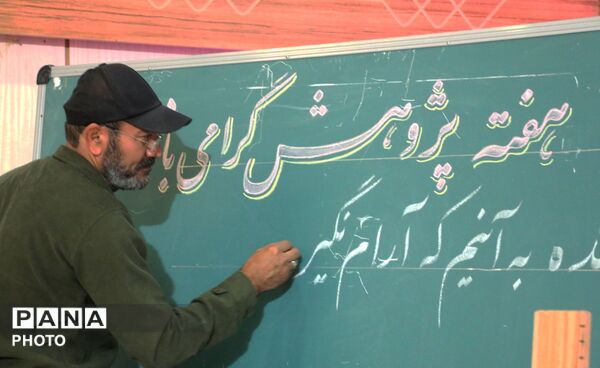 هفته پژوهش گرامی با
نده به آنیم که آرام نگیر
PANA
PHOTO